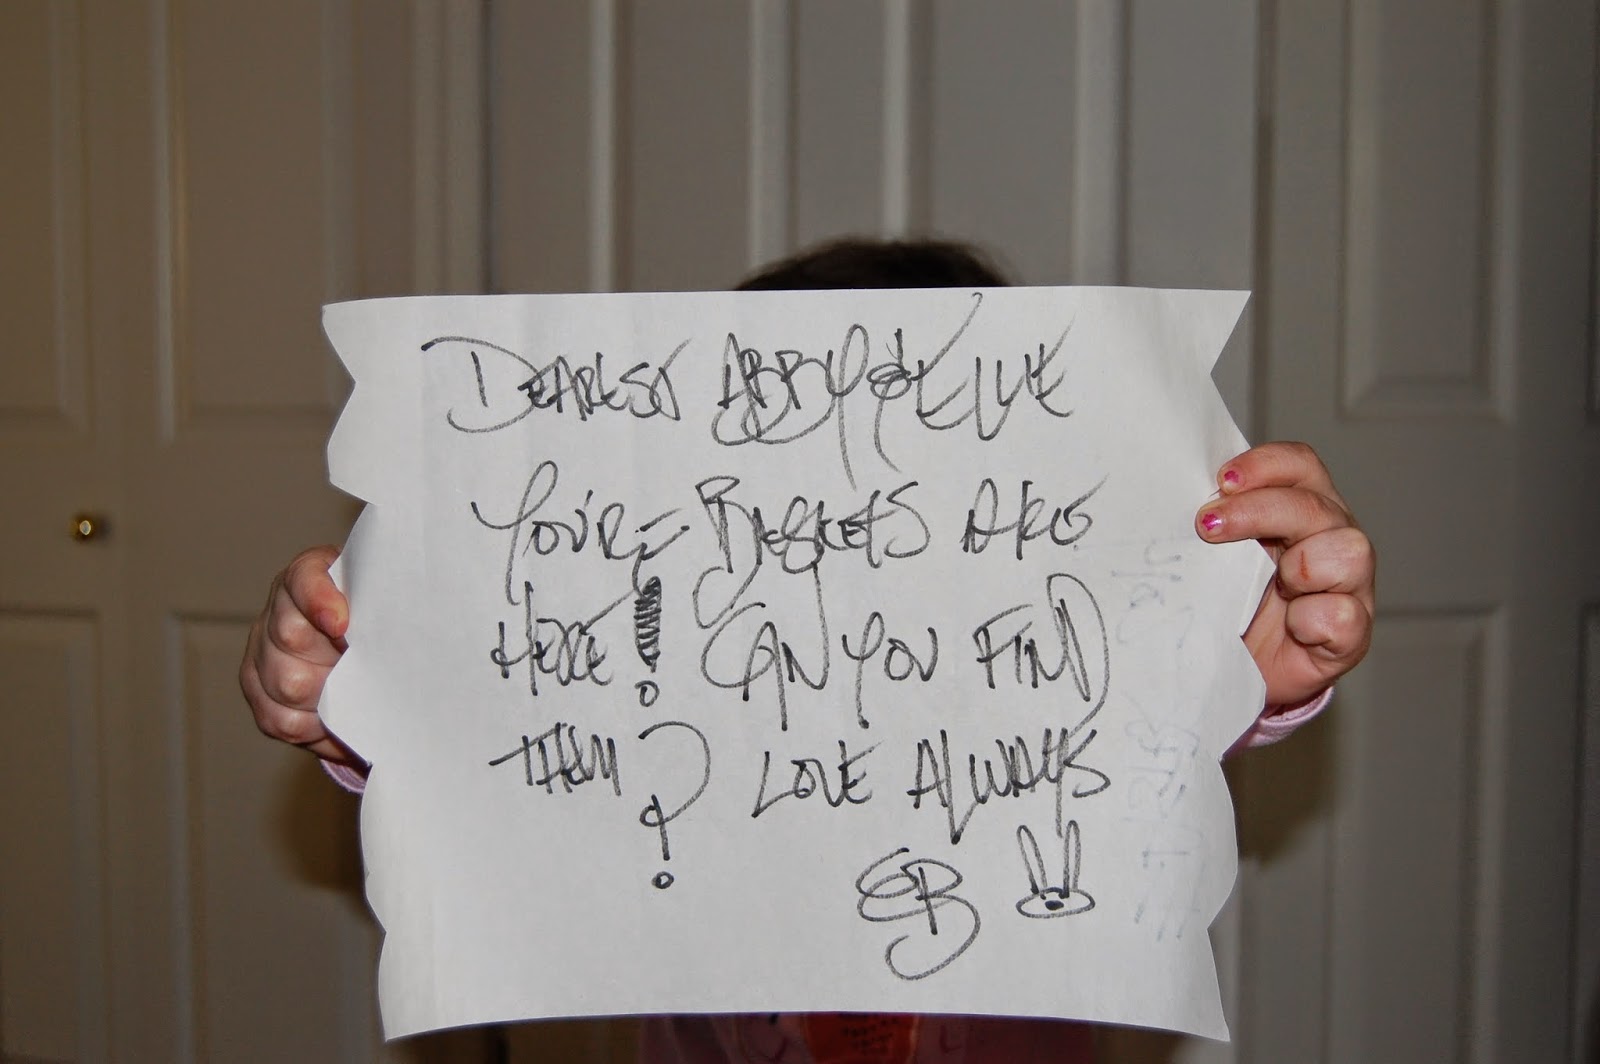 DEAREST ABBY & EVE
YOU'RE BASKETS ARE
HERE! CAN YOU FIND
THEM? LOVE ALWAYS
EB